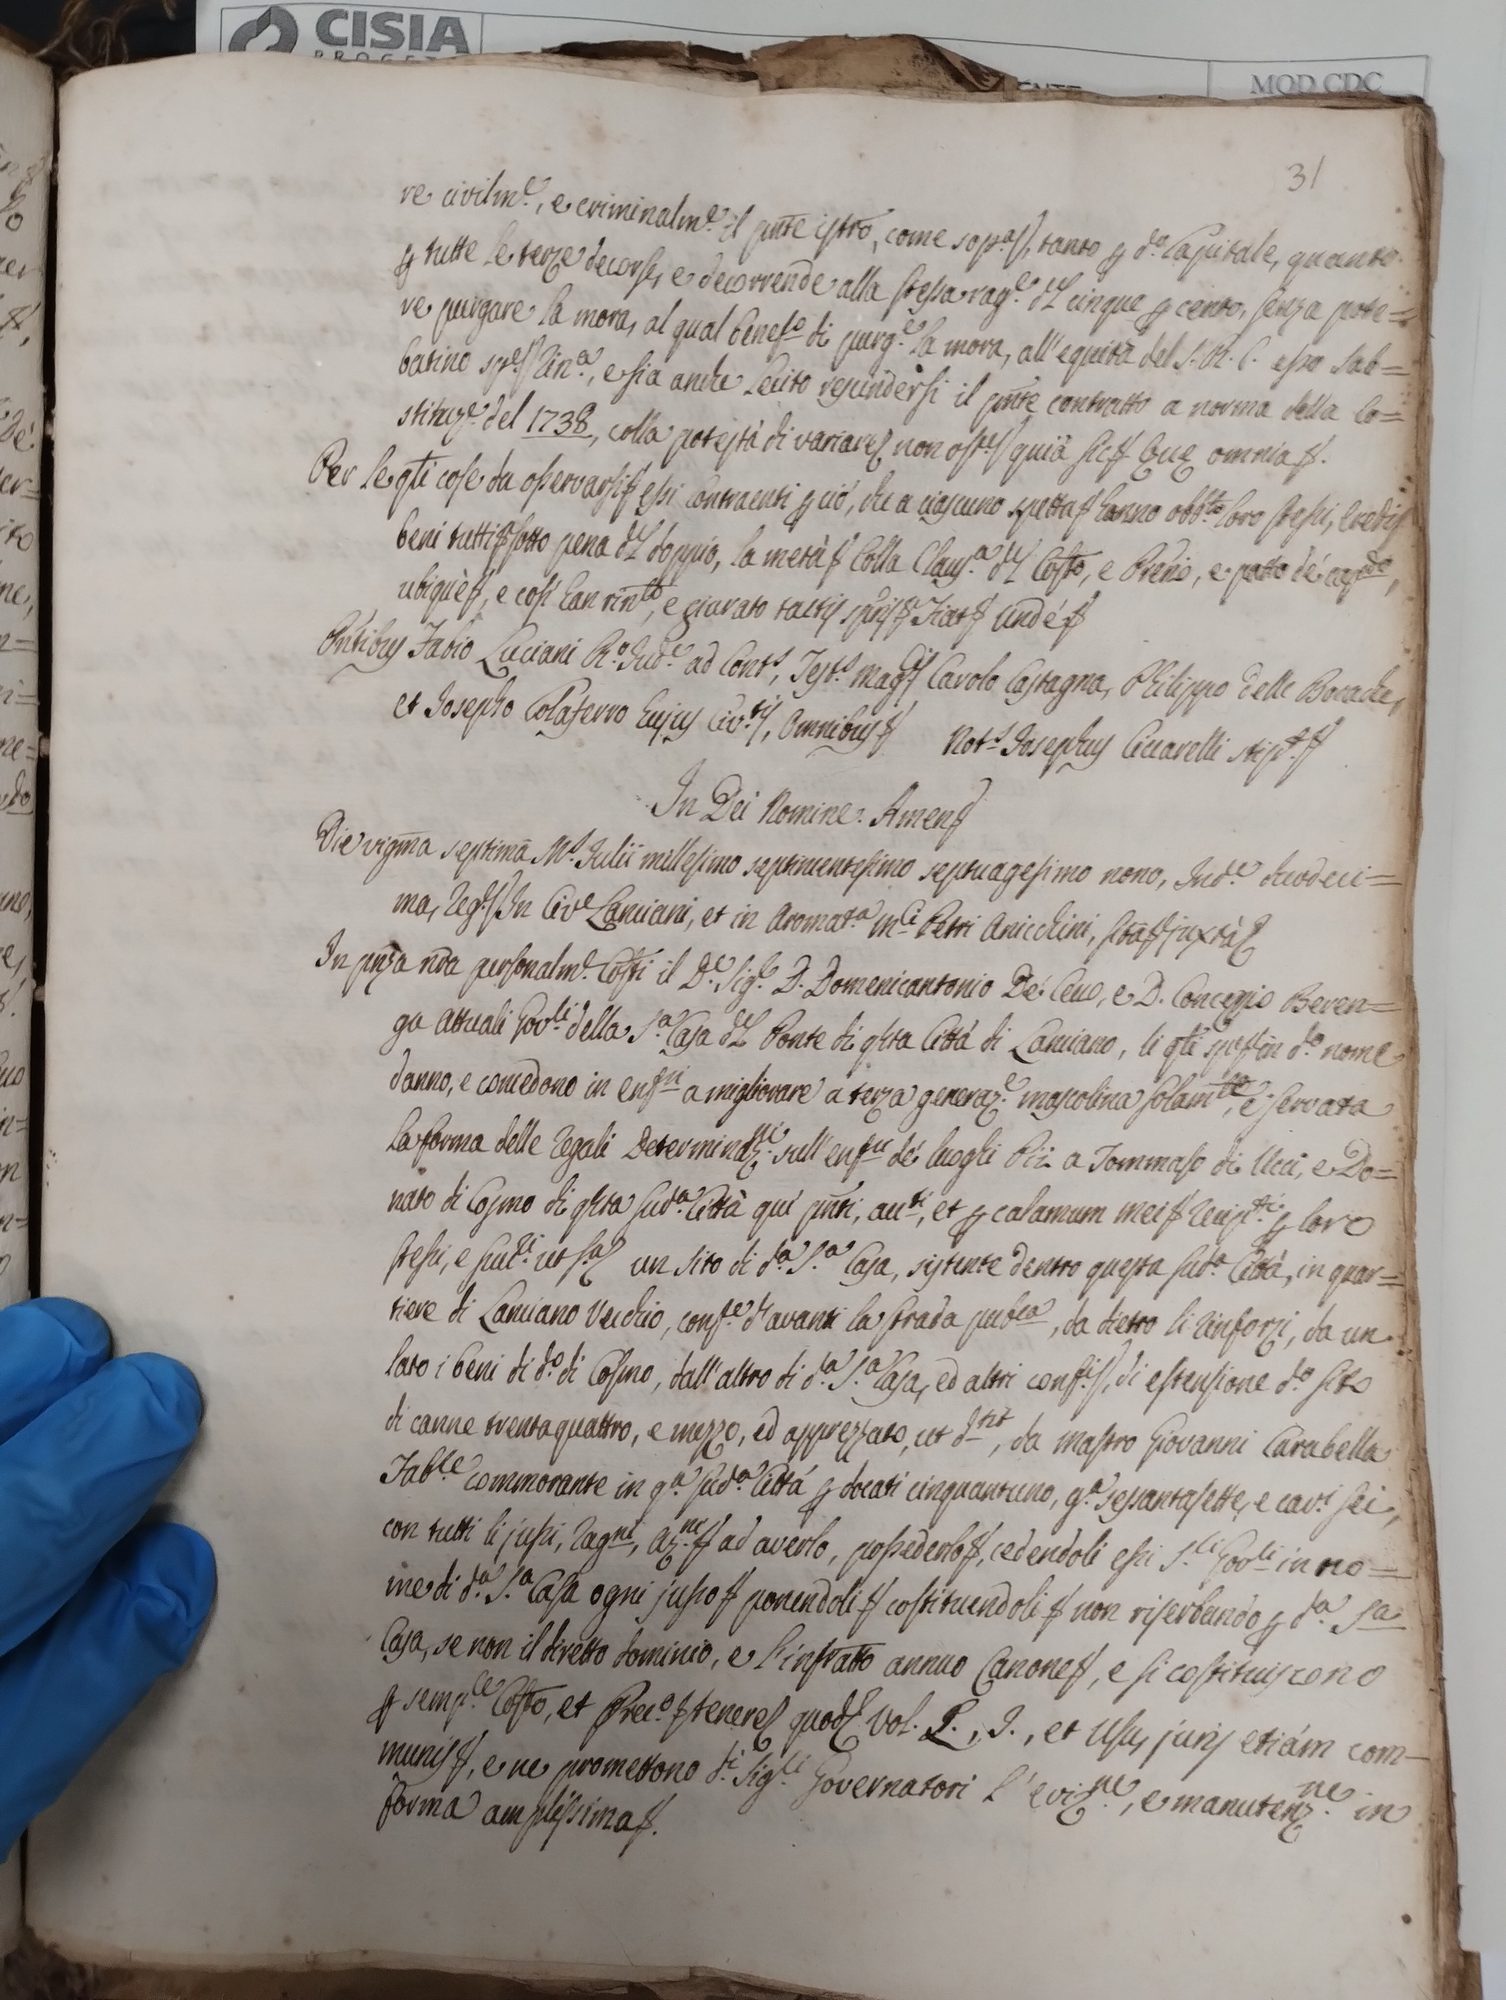 CISIA
PROGET
MOD CDC
31
re civilm.e, e criminalm.e il pnte istro, come sop.a, tanto p d.o Capitale, quanto
p tutte le terze decorse, e decorrende alla stessa rag.e del cinque p cento, senza pote=
re purgare la mora, al qual benef.o di purg.e la mora, all'equità del S.R.C. esso Sab=
batino rin.a, e sia anche lecito rescindersi il pnte contratto a norma della Co=
stituz.e del 1738, colla potestà di variare non ost.e quia sic que omnia
Per le qti cose da osservarsi essi Contraenti p ciò, che a ciascuno spetta hanno obb.to loro stessi, eredi
beni tutti sotto pena del doppio, la metà Colla Claus.a del Costo, e Preno, e patto de cap.do,
ubique, e così han rin.to, e giurato tactis spris Fiat Unde
Pntibus Fabio Luciani R.o Jud.e ad Cont.s, Test.s mag.ci Carolo Castagna, Philippo delle Borache,
et Josepho Colaferro hujus Civ.tis, Omnibus Not.s Josephus Ciccarelli stip.s
In Dei Nomine. Amen
Die vigma septima M.s Julii millesimo septincentesimo septuagesimo nono, Ind.e duodeci=
ma, Reg. In Civ.e Lanciani, et in Aromat.a m.ci Petri Anicchini, sita juxta
In pnza nra personalm.e Costi il D.r Sig.r D. Domenicantonio De Cecco, e D. Concezio Beren=
ga attuali Gov.li della S.a Casa del Ponte di qsta Città di Lanciano, li qti in d.o nome
danno, e concedono in enf.si a migliorare a terza generaz.e mascolina solam.te, e servata
la forma delle Regali Determinaz.ni sull'enf.si de luoghi Pii a Tommaso di Ucci, e Do=
nato di Cosmo di qsta sud.a Città qui pnti, acc.ti, et p calamum mei p loro
stessi, e ut s.a un sito di d.a S.a Casa, sistente dentro questa sud.a Città, in quar=
tiere di Lanciano Vecchio, conf.e d'avanti la strada pub.ca, da dietro li Rinforzi, da un
lato i beni di d.o di Cosmo, dall'altro di d.a S.a Casa, ed altri conf.i, di estensione d.o sito
di canne trentaquattro, e mezzo, ed apprezzato, ut d.tit, da mastro Giovanni Carabella
Fab.re commorante in q.a sud.a Città p docati cinquantuno, g.a sessantasette, e cav.i sei,
con tutti li jussi, Rag.ni, az.ni ad averlo, possederlo, cedendoli essi S.li Gov.li in no=
me di d.a S.a Casa ogni jusso ponendoli costituendoli non riserbando p d.a S.a
Casa, se non il diretto dominio, e l'infratto annuo Canone, e si costituiscono
p semp.e Costo, et Prec.o tenere quod Vol. P., J., et Usu, juris etiam com=
munis, e ne promettono d.i Sig.li Governatori l'eviz.ne, e manutenz.ne in
forma amplissima.